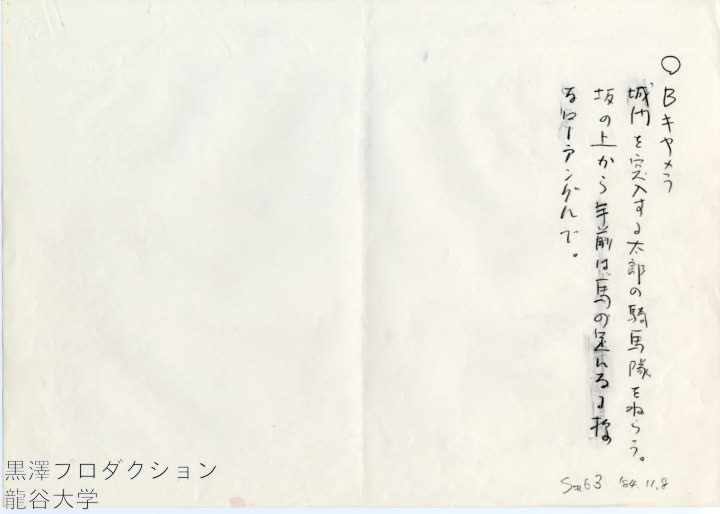 ○Bキヤメラ
城門を突入する太郎の騎馬隊をねらう。
坂の上から手前は馬の足入る様
なローアングルで。
S#63 '84.11.8
黒澤プロダクション
龍谷大学